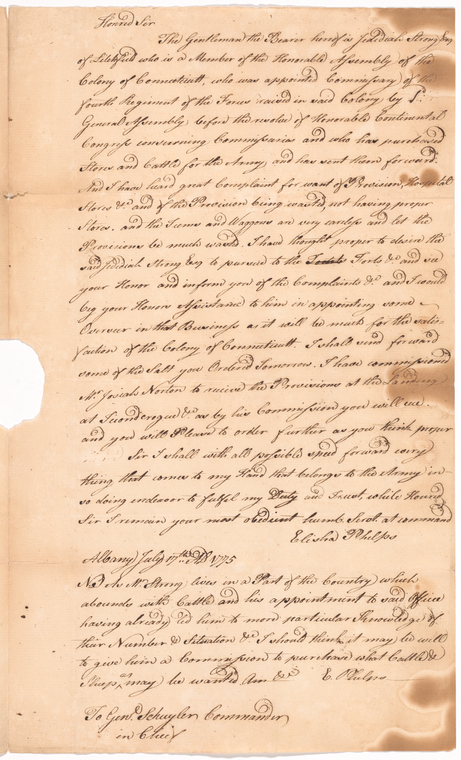 Honred Sir
The Gentleman the Bearer hereof is Jedidiah Strong Esq
of Litchfield who is a Member of the Honorable Assembly of the
Colony of Connecticutt, who was appointed Commissary of the
fourth Regiment of the Forces raised in said Colony by sd
General Assembly, before the resolve of Honorable Continental
Congress concerning Commissaries and who has purchased
Stores and Cattle for the Army, and has sent them forward.
And I have heard great Complaint for want of Provision, Hospital
Stores &c and of the Provision being wasted, not having proper
Stores, and the Teams and Waggons are very careless and let the
Provisions be much wasted. I have thought proper to desire the
said Jedidiah Strong Esq to pursued to the Forts &c and see
your Honor and inform you of the Complaints &c and I would
beg your Honors Assistance to him in appointing some
Overseer in that Business as it will be much for the satis-
faction of the Colony of Connecticutt. I shall send forward
some of the Salt you Ordered Tomorrow. I have commissioned
Mr Josiah Norton to recieve the Provisions at the Landing
at Ticonderogue &c as by his Commission you will see.
and you will Please to order further as you think proper
Sir I shall with all possible speed forward every
thing that comes to my Hand that belongs to the Army in
so doing endeavor to fulfil my Duty and Trust, while Honred
Sir I remain your most obedient humb. Servt. at command
Elisha Phelps
Albany July 17th AD 1775
NB As Mr Strong lives in a Part of the Country which
abounds with Cattle and his appointment to said Office
having already led him to more particular Knowledge of
their Number & Situation &c I should think it may be well
to give him a Commission to purchase what Cattle &
Sheep may be wanted, am &c E Phelps
To Genl. Schuyler Commander
in Chief